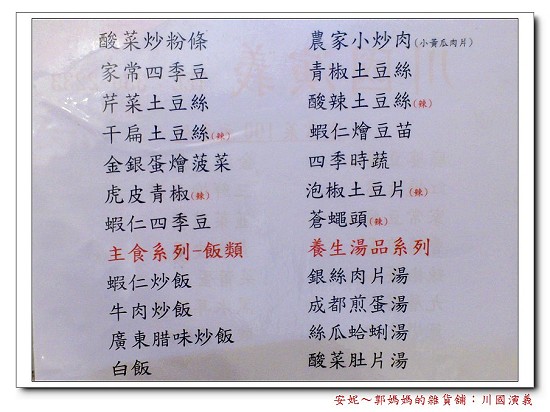 酸菜炒粉條
家常四季豆
芹菜土豆絲
干扁土豆絲(辣)
金銀蛋燴菠菜
虎皮青椒(辣)
蝦仁四季豆
主食系列-飯類
蝦仁炒飯
牛肉炒飯
廣東腊味炒飯
白飯
農家小炒肉(小黃瓜肉片)
青椒土豆絲
酸辣土豆絲(辣)
蝦仁燴豆苗
四季時蔬
泡椒土豆片(辣)
蒼蠅頭(辣)
養生湯品系列
銀絲肉片湯
成都煎蛋湯
絲瓜蛤蜊湯
酸菜肚片湯
安妮～郭媽媽的雜貨舖：川國演義